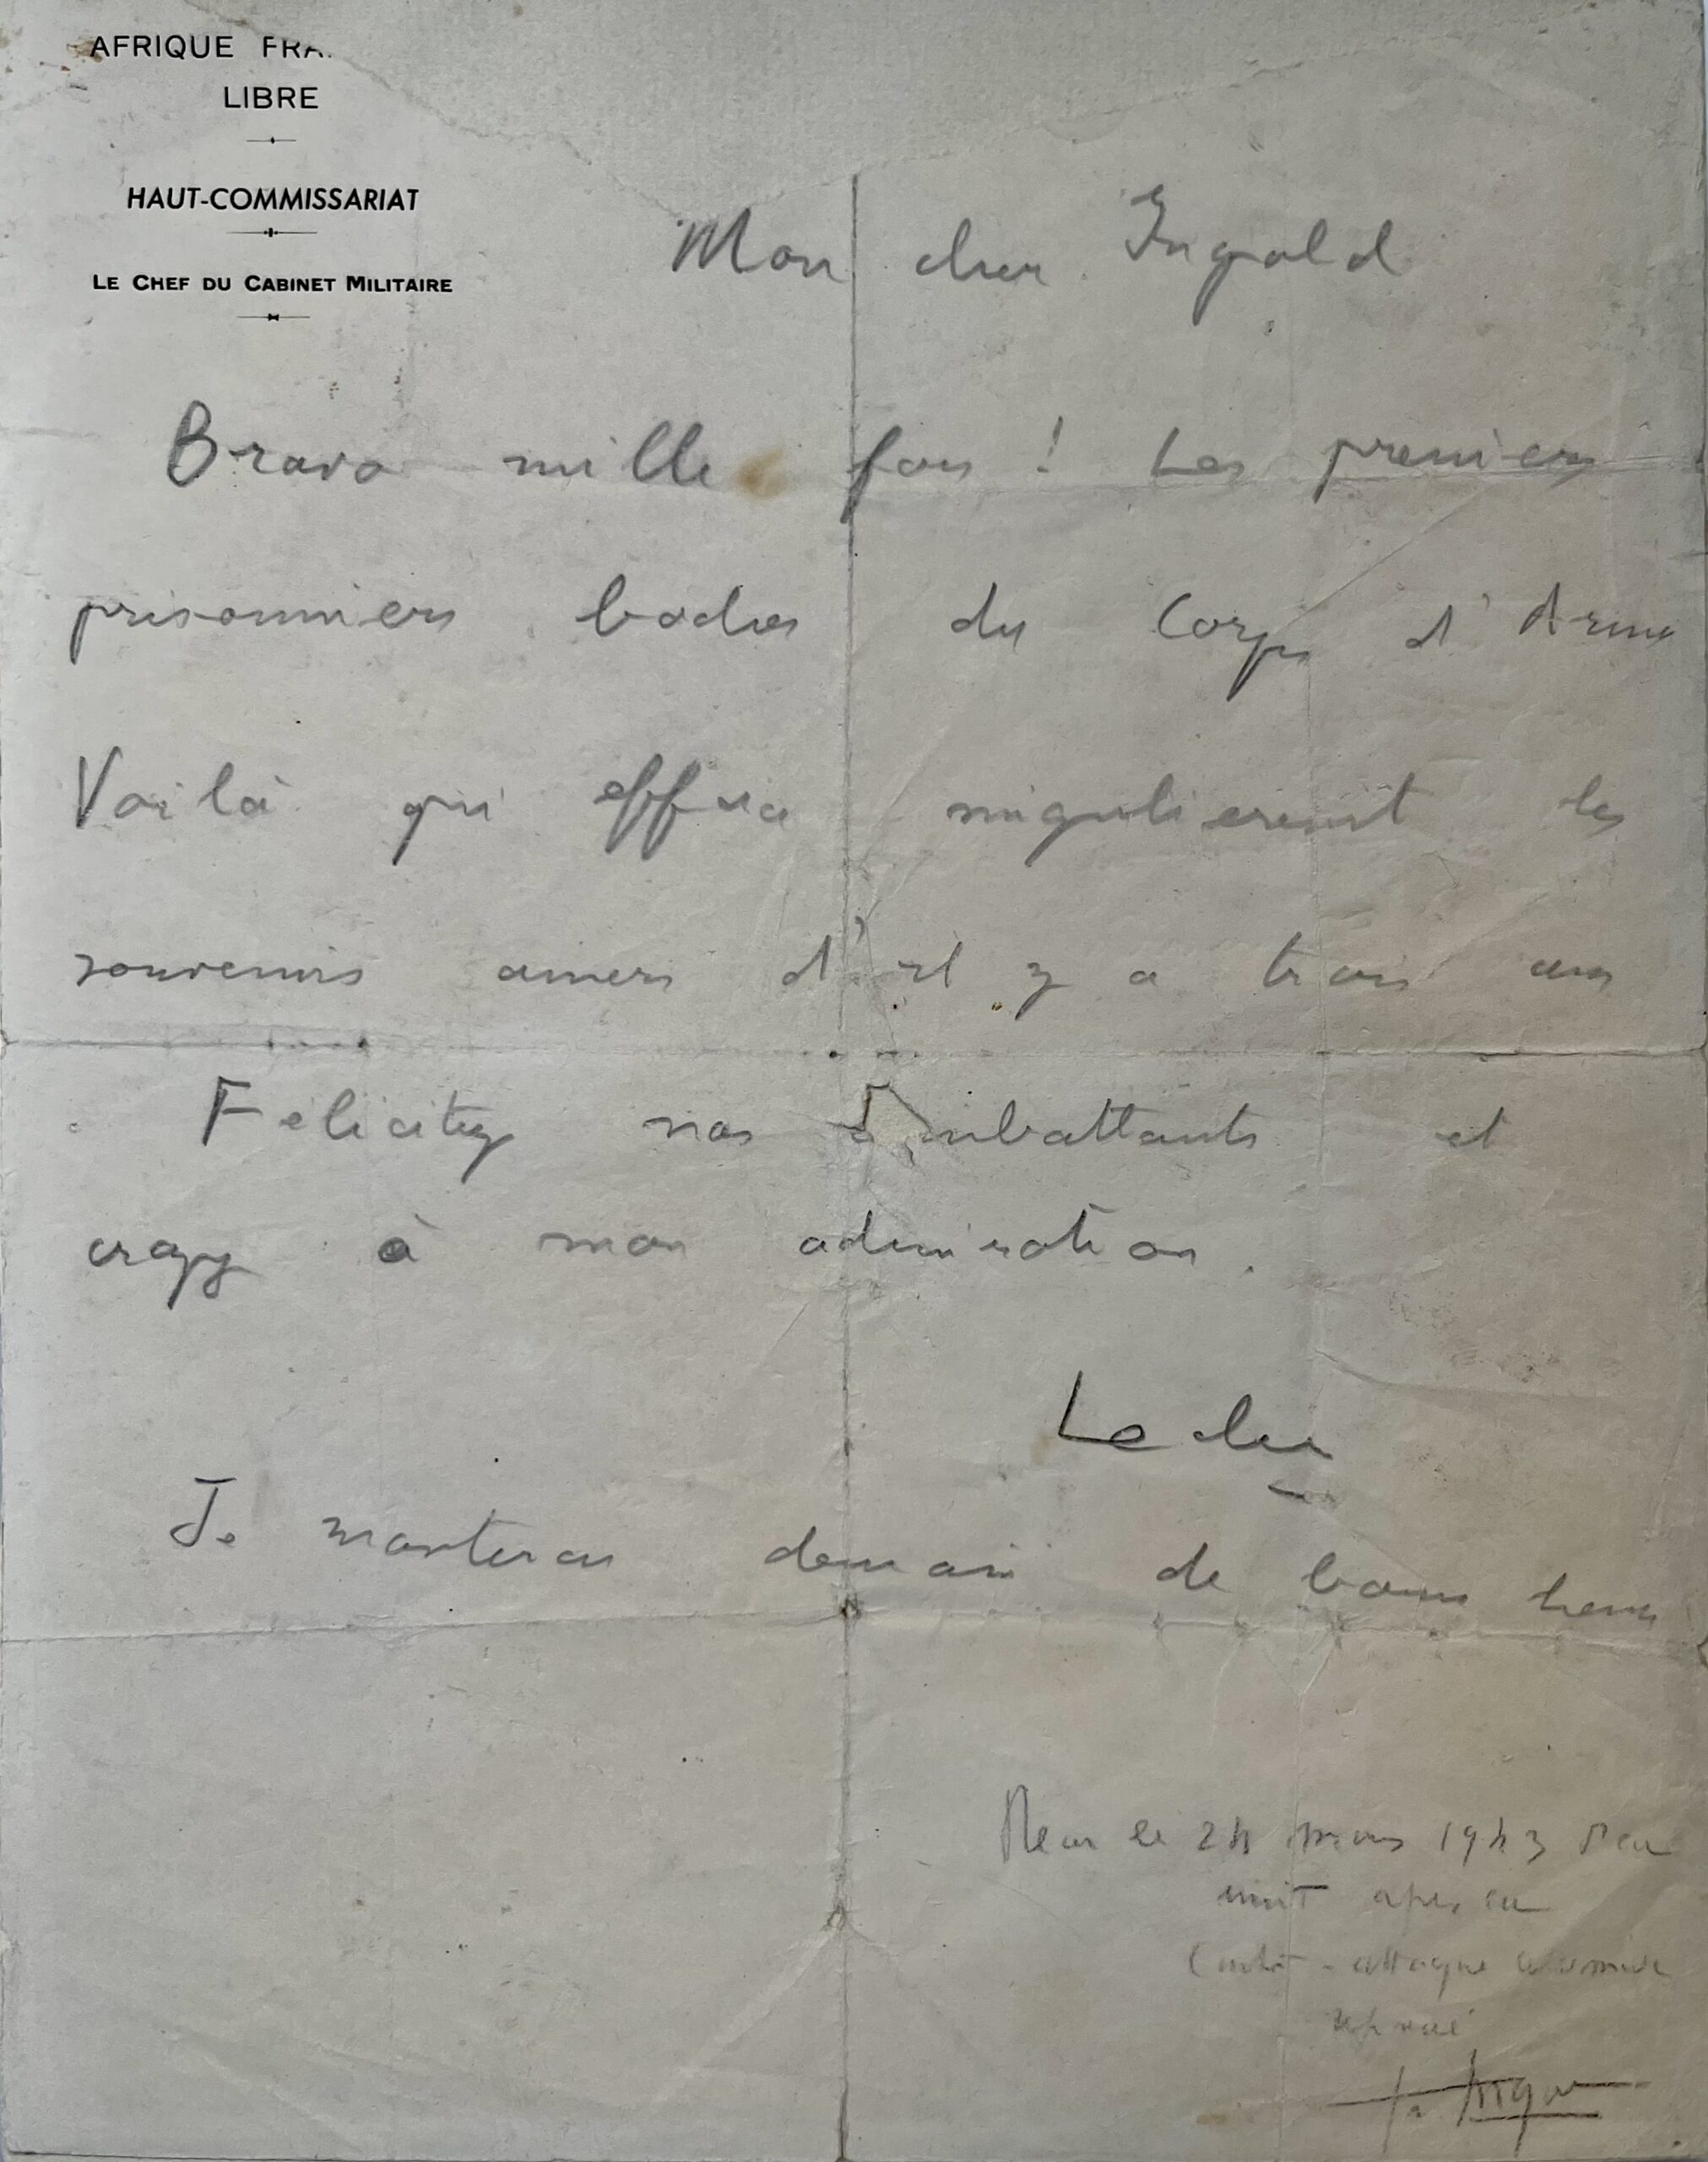 AFRIQUE FRA
LIBRE
HAUT-COMMISSARIAT
LE CHEF DU CABINET MILITAIRE
Mon cher Ingold
Bravo mille fois ! Les premiers
prisonniers boches du Corps d'Armée
Voilà qui efface singulierement les
souvenirs amers d'il y a trois ans
Felicitez nos combattants et
croyez à mon admiration.
Leclerc
Je monterai demain de bonne heure
le 24 mars 1943
nuit après la
Contre-attaque
Ingold